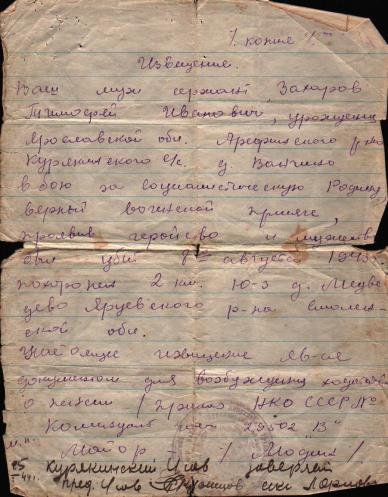 / копие /
Извещение.
Ваш муж сержант Захаров
Тимофей Иванович, уроженец
Ярославской обл. Арефинского р-на
Курякинского с/с. д. Ванчино
в бою за социалистическую Родину
верный воинской присяге,
проявив геройство и мужество
был убит 8го августа 1943г.
похоронен 2 км. Ю-З д. Медве
дево Ярцевского р-на смолен-
ской обл.
извещение яв-ся
документом для возбуждения ходатайс
о пенсии / приказ НКО СССР №
Командир части 29502 "В"
м.п. Майор / /
Курякинский с/сов заверяет
пред. с/сов